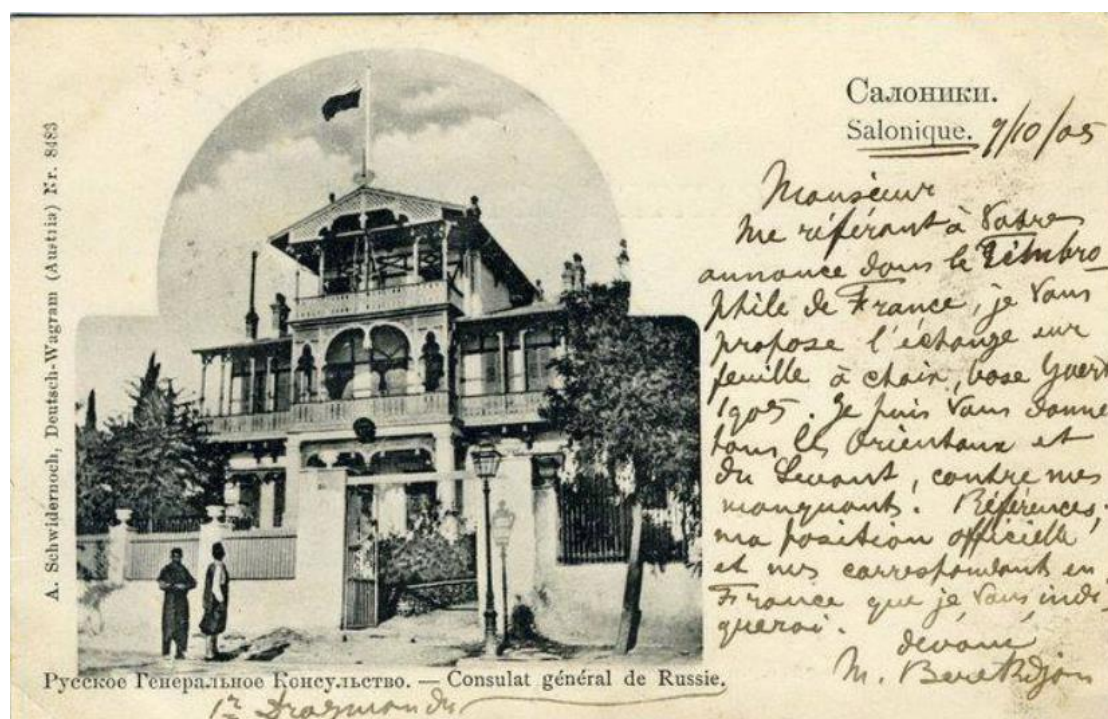 Салоники.
Salonique. 9/10/05
Monsieur
Me référant à Votre
annonce dans le Timbro
phile de France, je Vous
propose l'échange sur
feuille à choix, base Yvert
1905. Je puis Vous donner
tous les Orientaux et
du Levant, contre mes
manquants. Références,
ma position officielle
et mes correspondants en
France que je Vous indi-
querai.
dévoué
M.
A. Schwidernoch, Deutsch-Wagram (Austria) Nr. 8483
Русское Генеральное Консульство. — Consulat général de Russie.
1er Dragman du